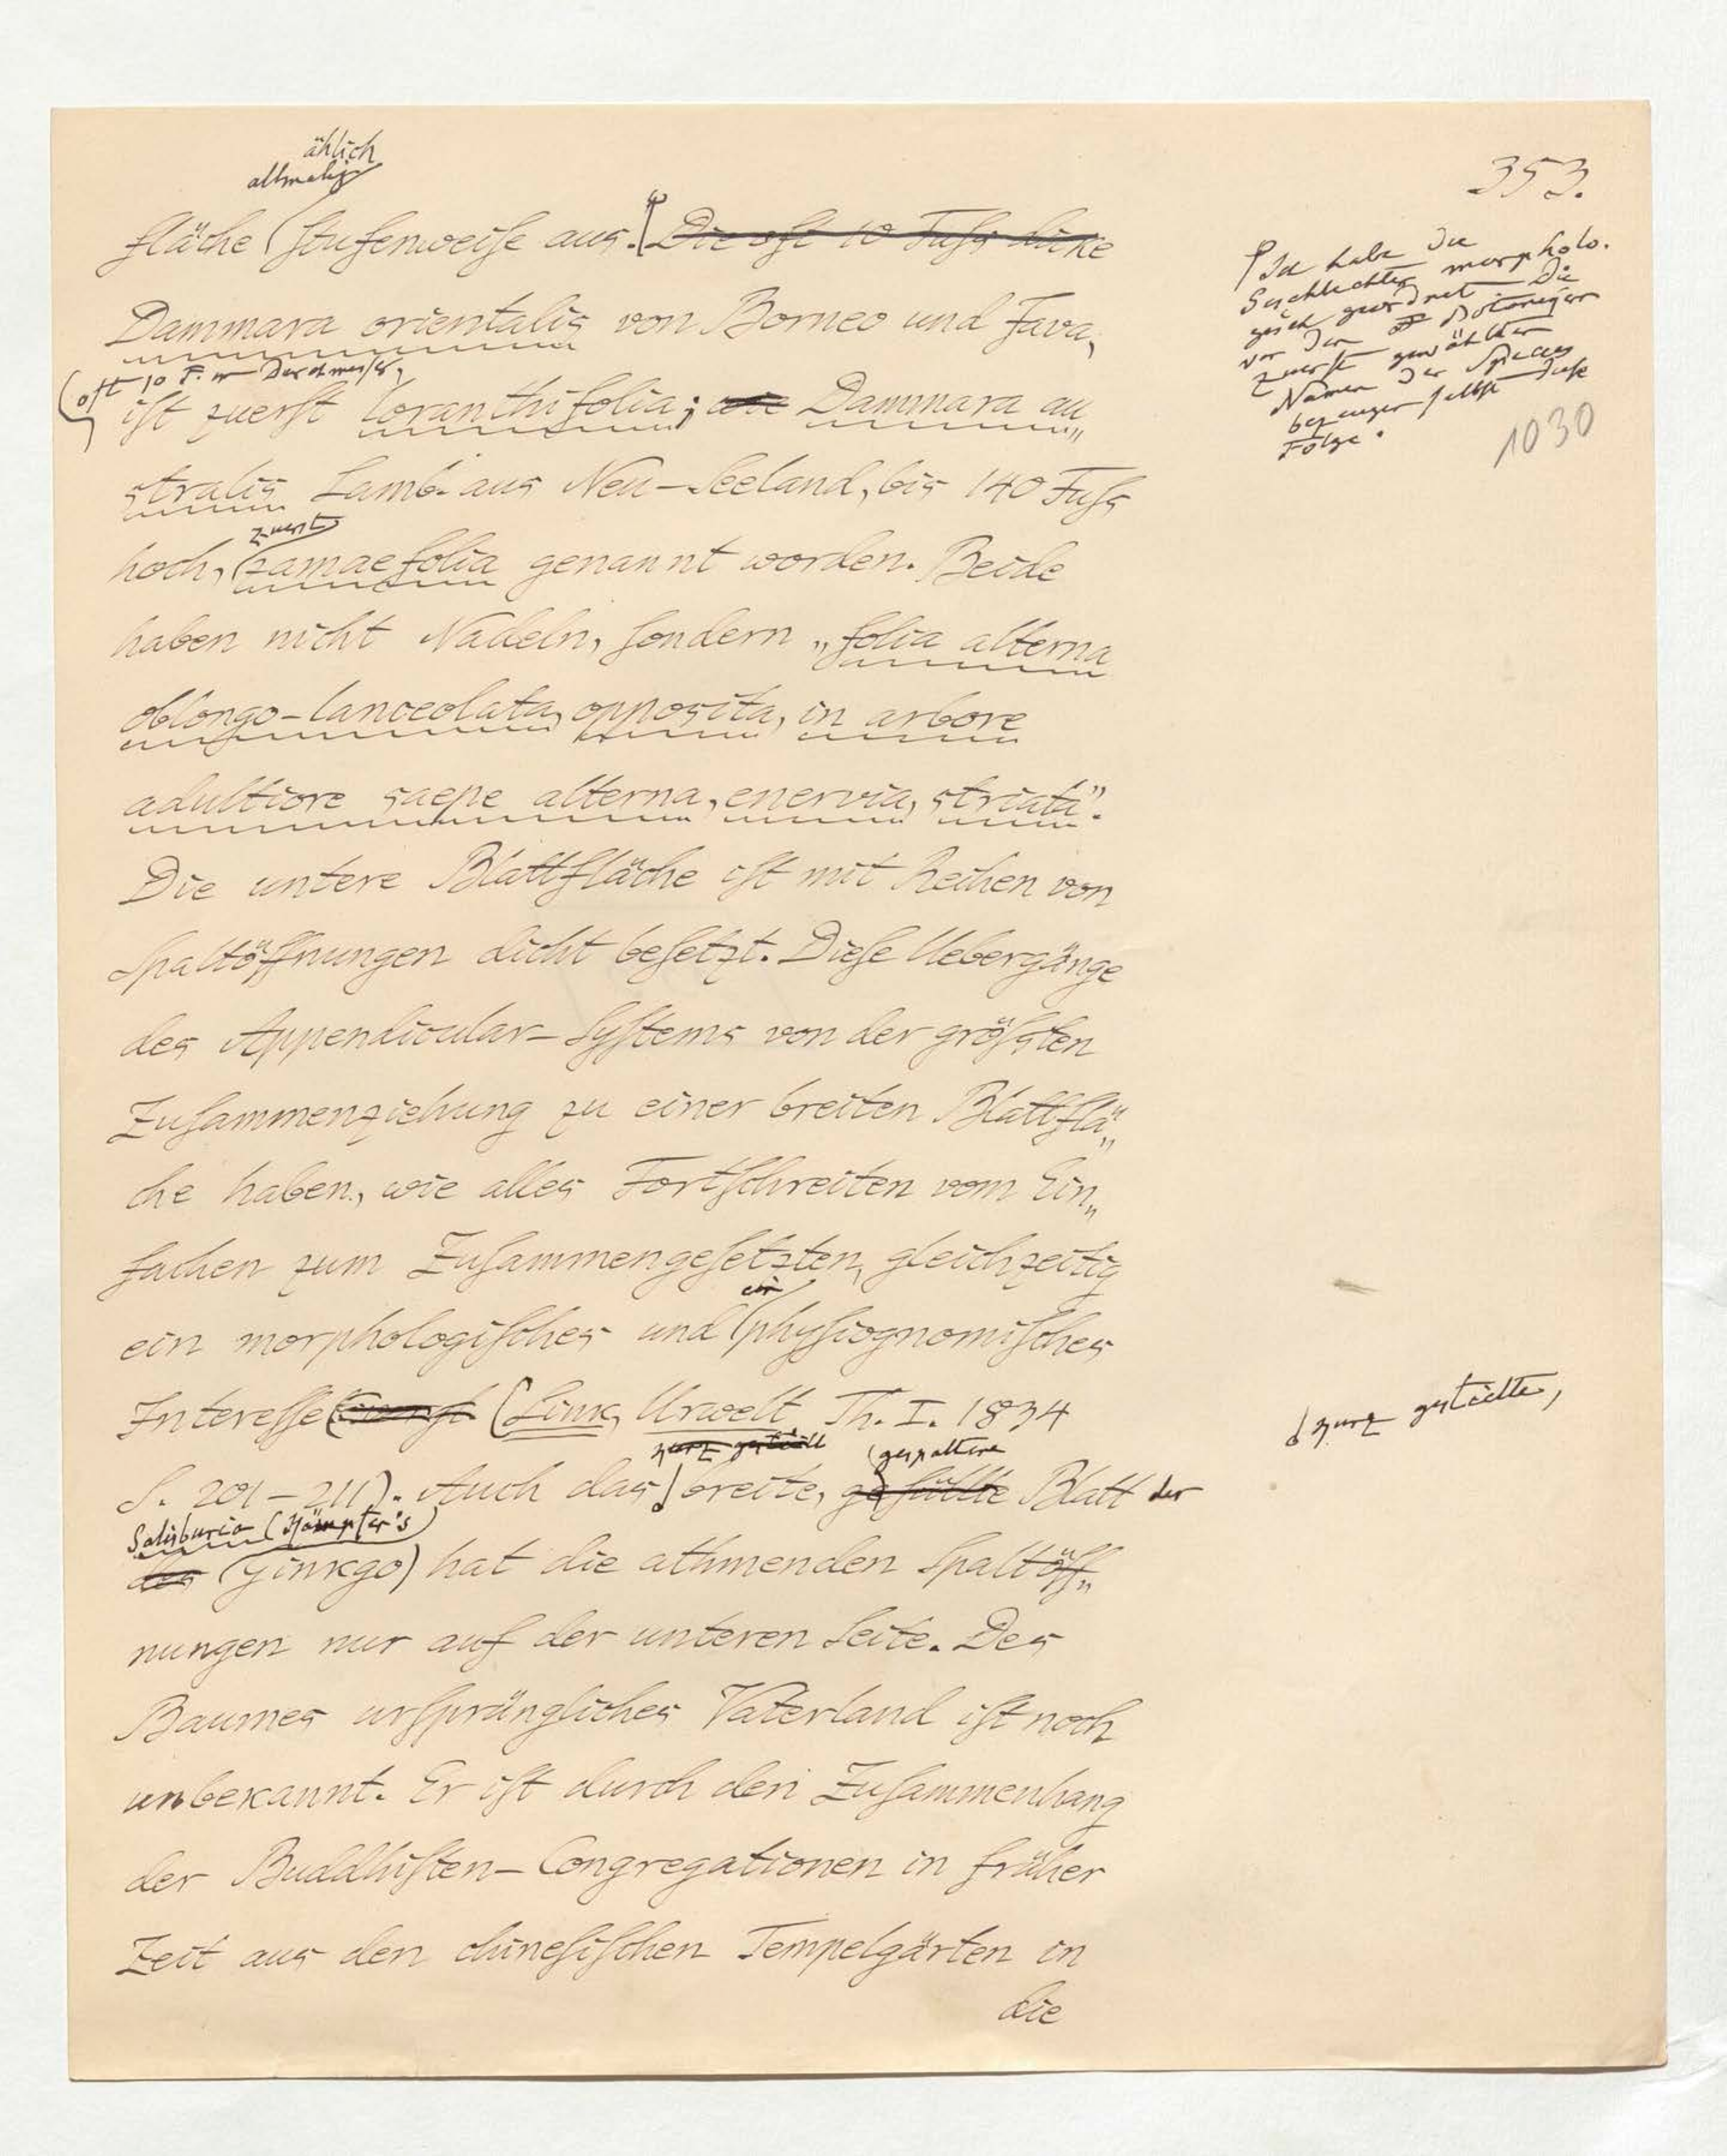 353.
ählich
allmalig
fläche stufenweise aus. Die oft 10 Fuss dicke
Dammara orientalis von Borneo und Java,
(oft 10 F. im Durchmesser)
ist zuerst loranthifolia; wie Dammara au„
stralis Lamb. aus Neu-Seeland, bis 140 Fuss
zuerst
hoch, zamaefolia genannt worden. Beide
haben nicht Nadeln, sondern „folia alterna
oblongo-lanceolata, opposita, in arbore
adultiore saepe alterna, enervia, striata".
Die untere Blattfläche ist mit Reihen von
Spaltöffnungen dicht besetzt. Diese Uebergänge
des Appendicular-Systems von der grössten
Zusammenziehung zu einer breiten Blattflä„
che haben, wie alles Fortschreiten vom Ein„
fachen zum Zusammengesetzten, gleichzeitig
ein
ein morphologisches und physiognomisches
Interesse (Link, Urwelt Th. I. 1834
zart getheilt gespaltene
S. 201-211). Auch das breite, gefüllte Blatt der
Salisburia (Kämpfer's
des Ginkgo) hat die athmenden Spaltöff„
nungen nur auf der unteren Seite. Des
Baumes ursprüngliches Vaterland ist noch
unbekannt. Er ist durch den Zusammenhang
der Buddhisten-Congregationen in früher
Zeit aus den chinesischen Tempelgärten in
die
Ich habe die
Geschlechter morpholo.
gisch geordnet. Die
von den Botanikern
zuerst gewählten
Namen der Species
bezeugen selbst diese
Folge.
1030